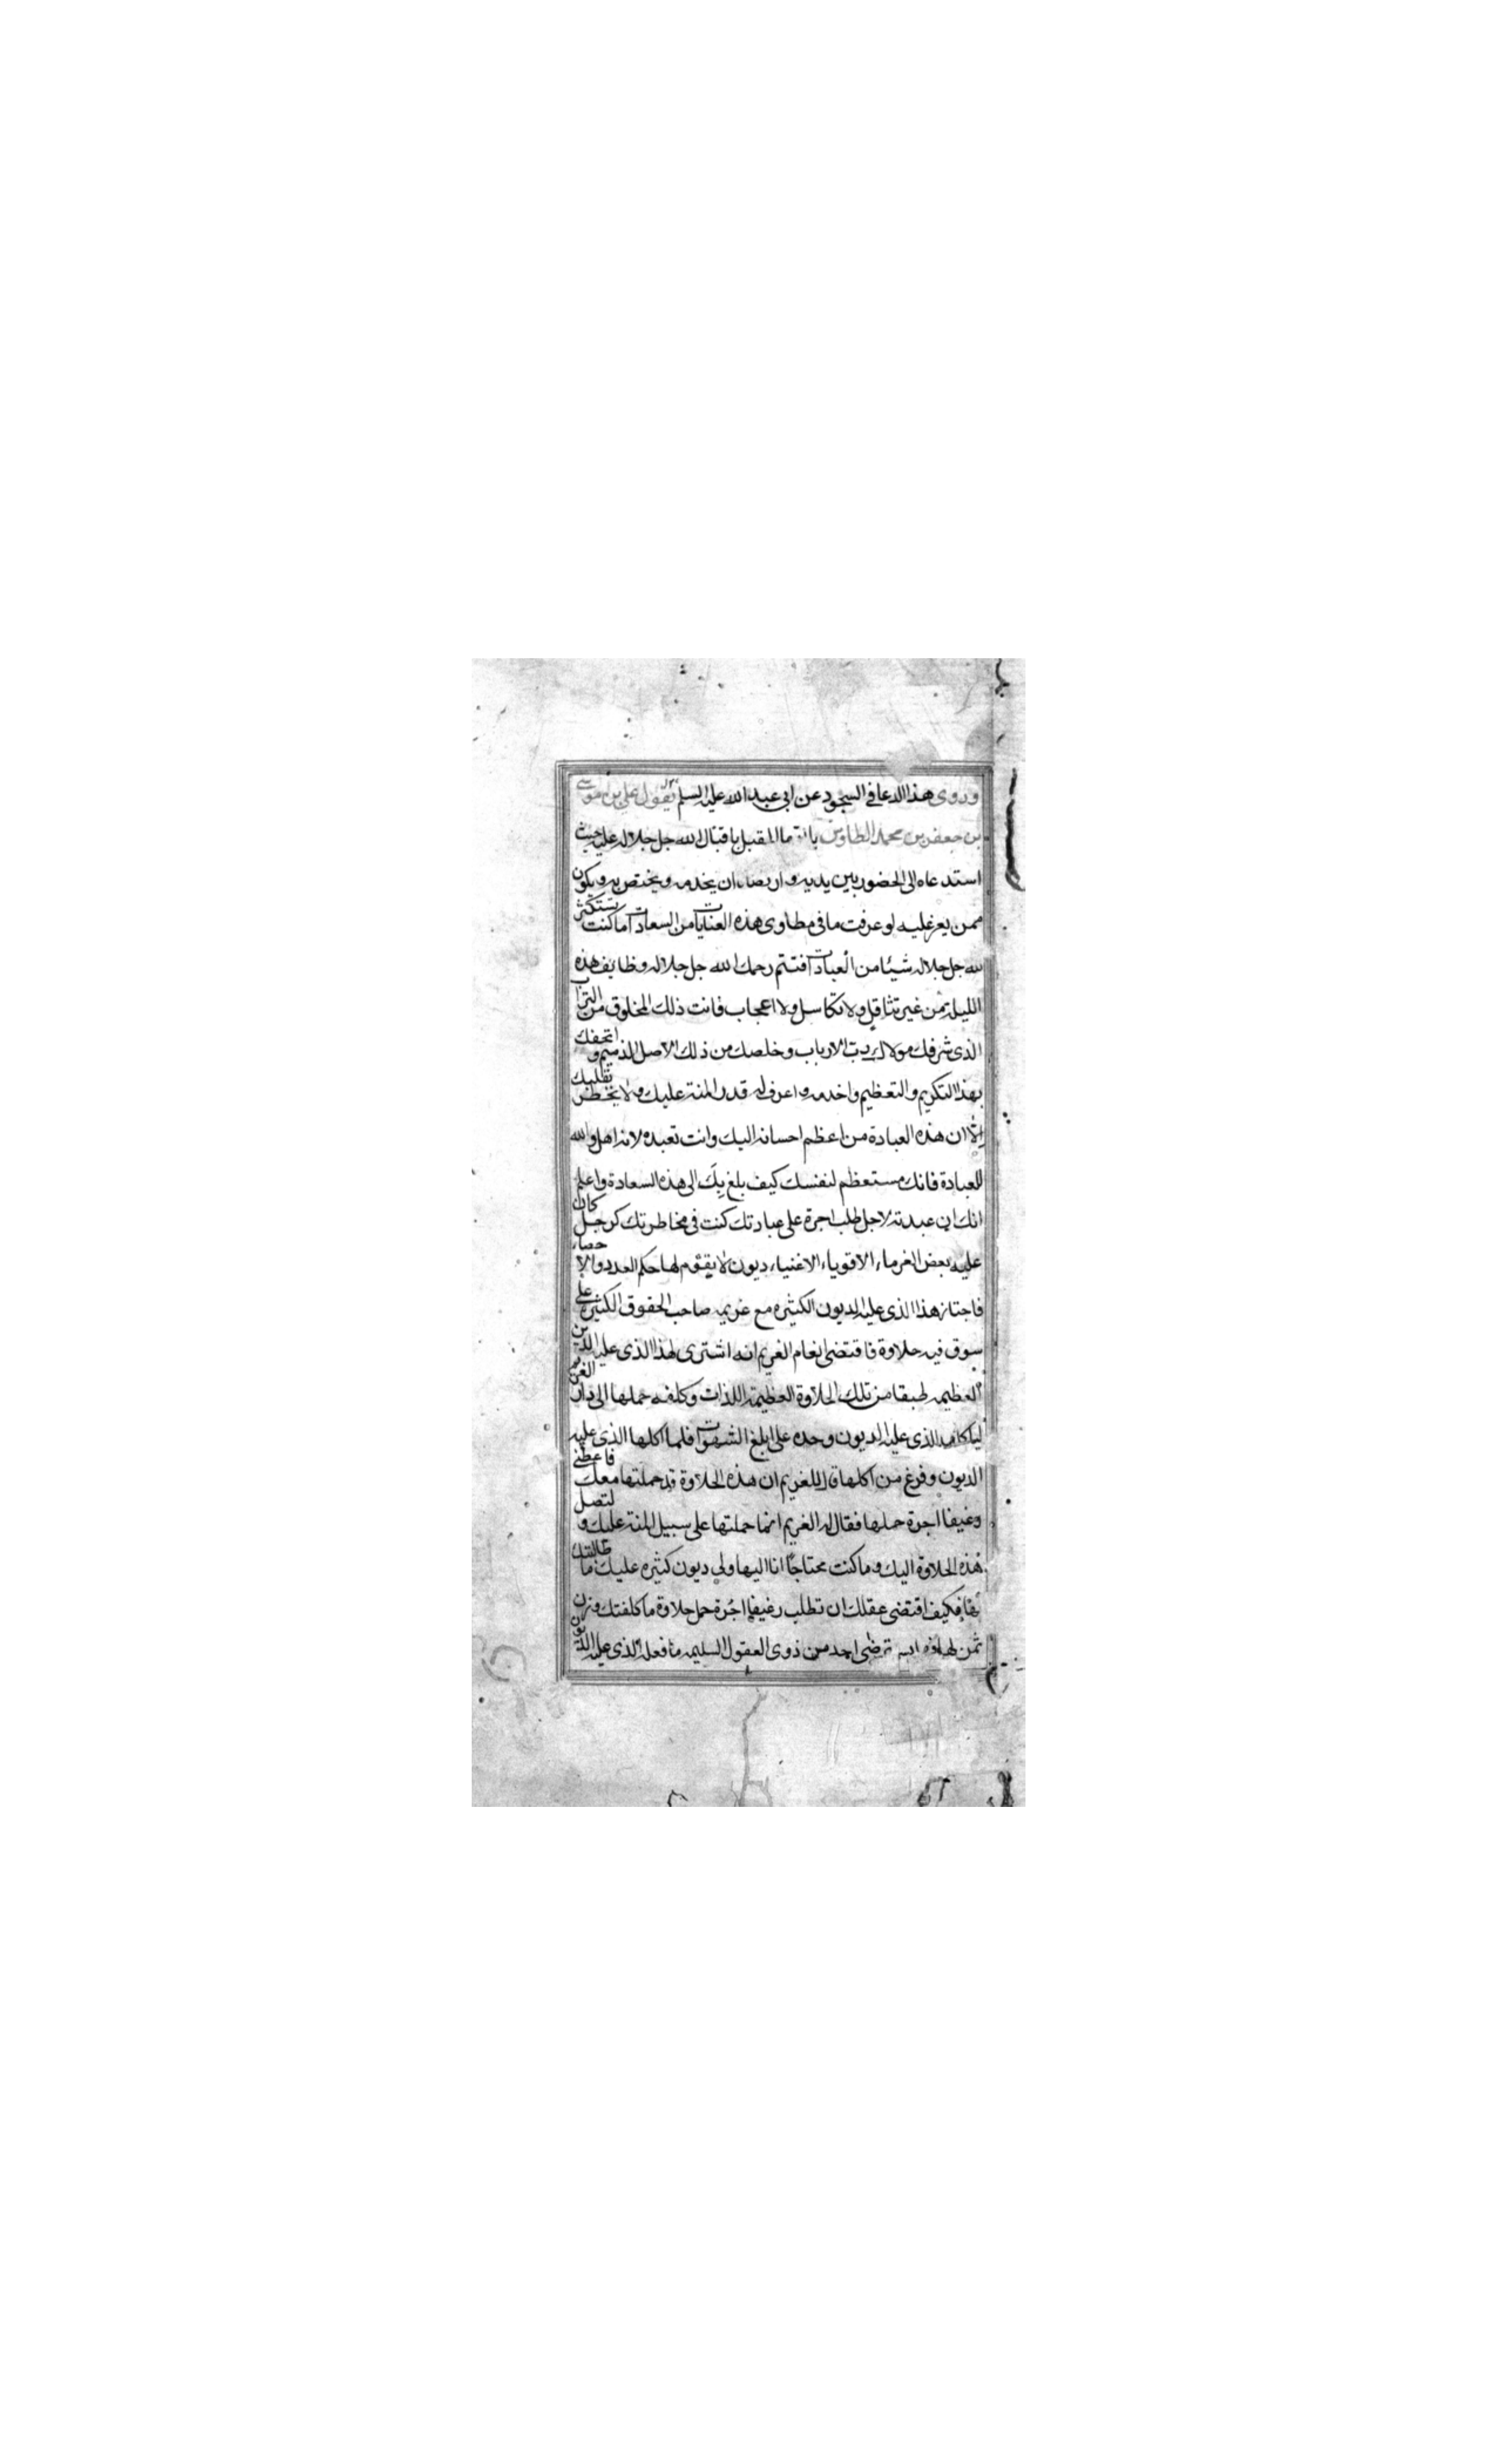 وروى هذا الدعا في السجود عن ابي عبد الله عليه السلم يقول علي بن موسى
بن جعفر بن محمد الطاوس ما المقبل باقبال الله جل جلاله عليه حيث
استدعاه الى الحضور بين يديه وارتضاه ان يخدمه ويختص به ويكون
ممن يعز عليه لو عرفت ما في مطاوى هذه العنايات من السعادات ما كنت تستكثر
لله جل جلاله شيئا من العبادات فتتم رحمك الله جل جلاله وظايف هذه
الليلة من غير تثاقل ولا تكاسل ولا اعجاب فانت ذلك المخلوق من التراب
الذى شرفك مولاك رب الارباب وخلصك من ذلك الاصل الذميم واتحفك
بهذا التكريم والتعظيم واخدمه واعرف له قدر المنة عليك ولا يخطر بقلبك
الا ان هذه العبادة من اعظم احسانه اليك وانت تعبده لانه اهل والله
للعبادة فانك مستعظم لنفسك كيف بلغ بك الى هذه السعادة واعلم
انك ان عبدته لاجل طلب اجرة على عبادتك كنت في مخاطرتك كرجل كان
عليه بعض الغرماء الاقوياء الاغنياء ديون لا يقوم لها حكم العدد والاحصاء
فاجتاز هذا الذى عليه الديون الكثيره مع غريمه صاحب الحقوق الكثيره على
سوق فيه حلاوة فاقتضى انعام الغريم انه اشترى لهذا الذى عليه الدين
العظيمه طبقا من تلك الحلاوة العظيمة اللذات وكلفه حملها الى دار الغريم
لياكلها الذى عليه الديون وحده على ابلغ الشهوات فلما اكلها الذى عليه
الديون وفرغ من اكلها قال للغريم ان هذه الحلاوة قد حملتها معك فاعطنى
رغيفا اجرة حملها فقال له الغريم انما حملتها على سبيل المنة عليك ولتصل
هذه الحلاوة اليك وما كنت محتاجا انا اليها ولى ديون كثيره عليك ما طالبتك
بها فكيف اقتضى عقلك ان تطلب رغيفا اجرة حمل حلاوة ما كلفتك وزن
ثمن لها يرضى احد من ذوى العقول السليمه ما فعله الذى عليه الديون